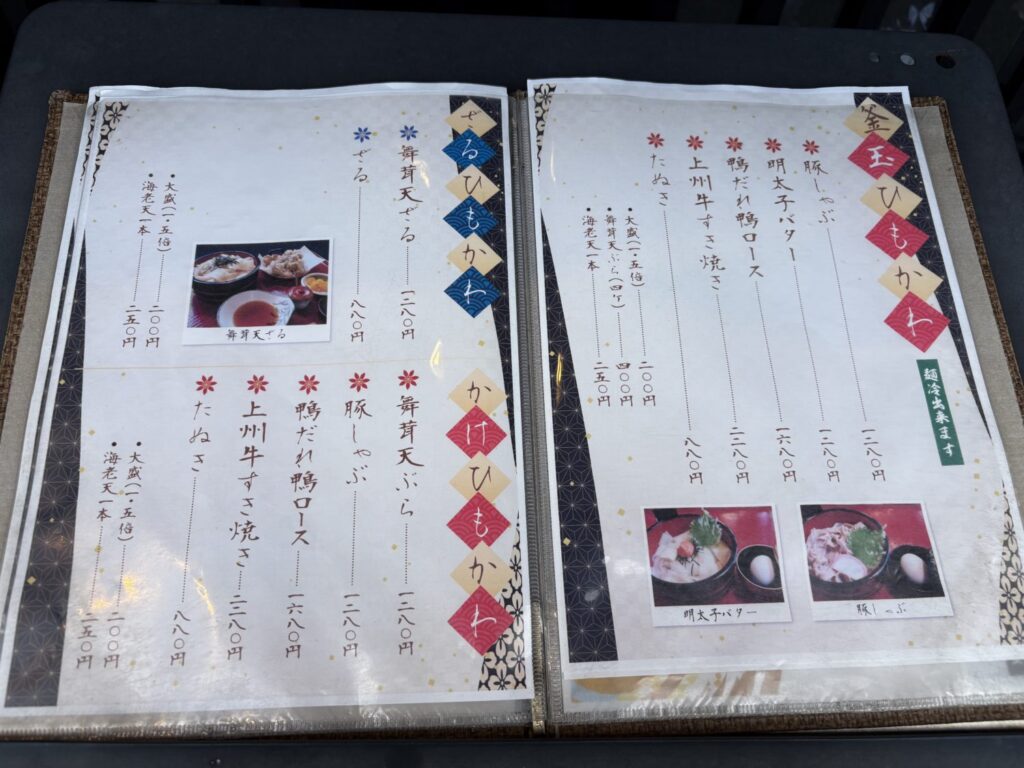 釜玉ひもかわ
麺冷出来ます
豚しゃぶ 一二八〇円
明太子バター 一二八〇円
鴨だれ鴨ロース 一六八〇円
上州牛すき焼き 二二八〇円
たぬき 八八〇円
・大盛(一・五倍) 二〇〇円
・舞茸天ぷら(四ケ) 四〇〇円
・海老天一本 二五〇円
豚しゃぶ
明太子バター
ざるひもかわ
舞茸天ざる 一二八〇円
ざる 八八〇円
舞茸天ざる
・大盛(一・五倍) 二〇〇円
・海老天一本 二五〇円
かけひもかわ
舞茸天ぷら 一二八〇円
豚しゃぶ 一二八〇円
鴨だれ鴨ロース 一六八〇円
上州牛すき焼き 二二八〇円
たぬき 八八〇円
・大盛(一・五倍) 二〇〇円
・海老天一本 二五〇円